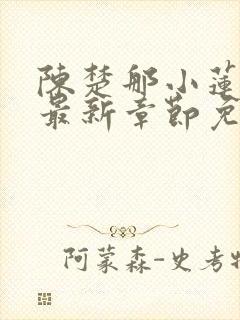 陳楚那小蓮
最新章節免
阿蒙森-史考特